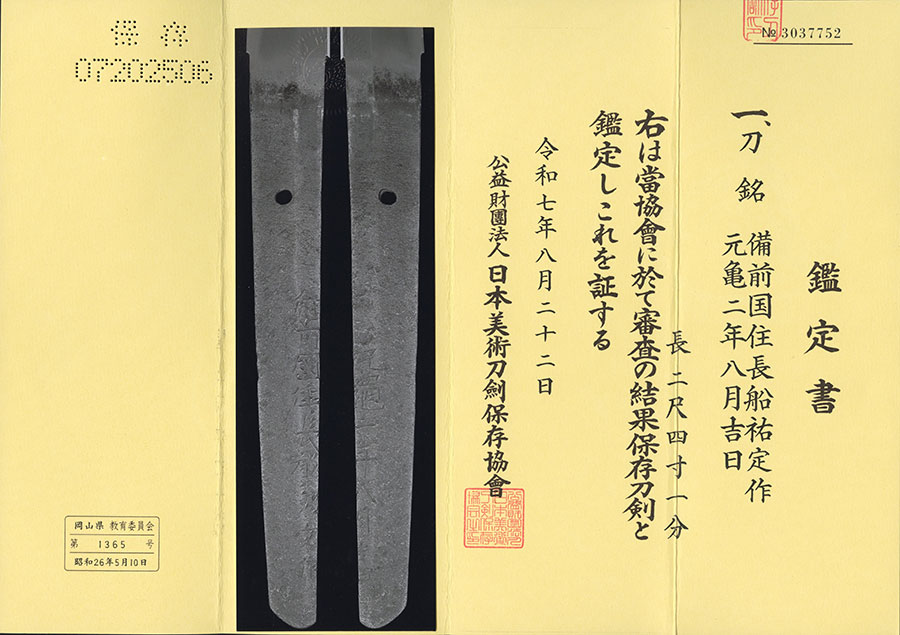 № 3037752
鑑定書
一、刀 銘 備前国住長船祐定作
元亀二年八月吉日
長二尺四寸一分
右は當協會に於て審査の結果保存刀剣と
鑑定しこれを証する
令和七年八月二十二日
公益財團法人 日本美術刀劍保存協會
保存
07202506
岡山県 教育委員会
第 1365 号
昭和26年5月10日